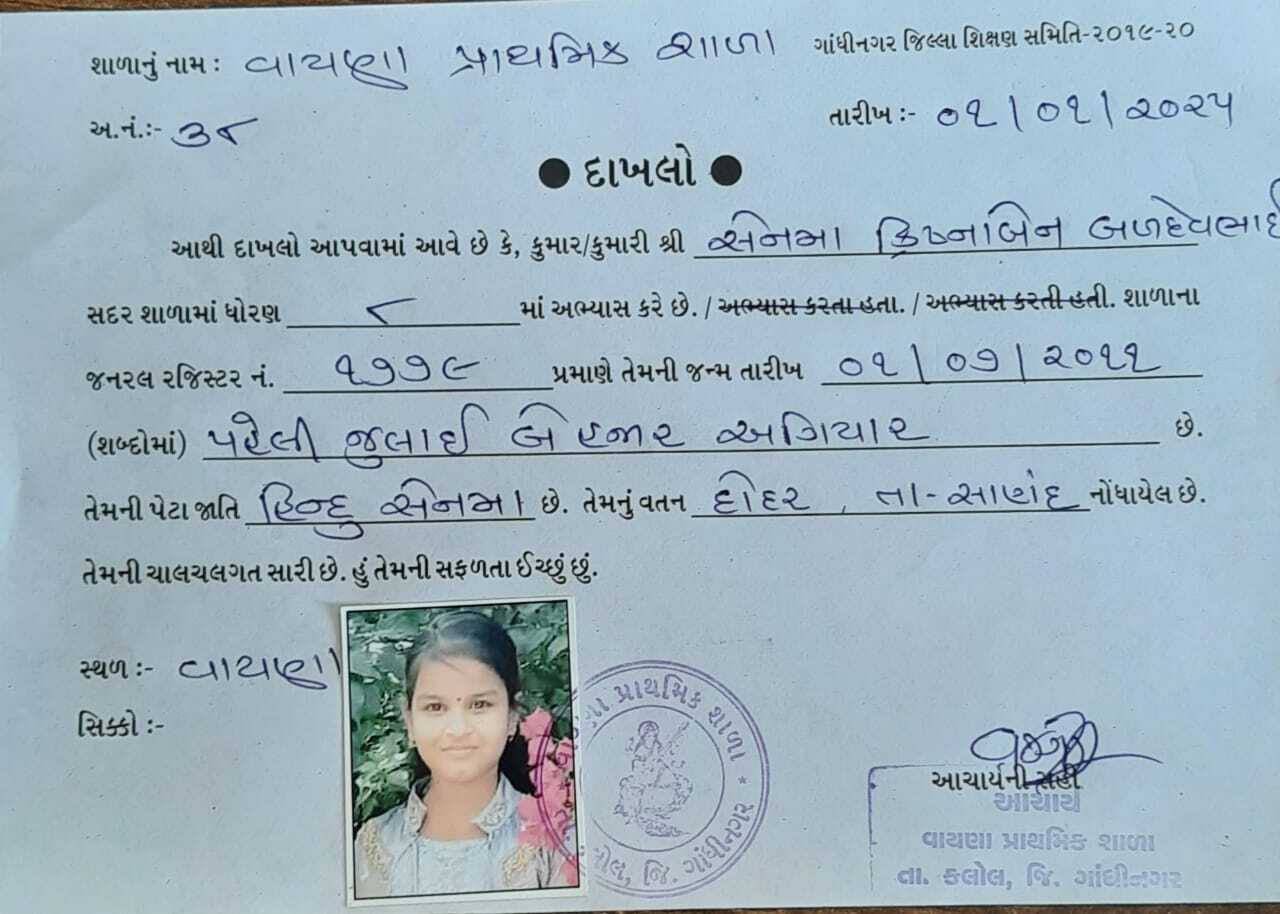 શાળાનું નામ : વાયણા પ્રાથમિક શાળા ગાંધીનગર જિલ્લા શિક્ષણ સમિતિ-૨૦૧૯-૨૦
અ.નં.:- ૩૮ તારીખ :- ૦૧/૦૧/૨૦૨૫
● દાખલો ●
આથી દાખલો આપવામાં આવે છે કે, કુમાર/કુમારી શ્રી સેનમા ક્રિષ્નાબેન બળદેવભાઈ
સદર શાળામાં ધોરણ ૮ માં અભ્યાસ કરે છે. / અભ્યાસ કરતા હતા. / અભ્યાસ કરતી હતી. શાળાના
જનરલ રજિસ્ટર નં. ૧૭૭૯ પ્રમાણે તેમની જન્મ તારીખ ૦૧/૦૭/૨૦૧૧
(શબ્દોમાં) પહેલી જુલાઈ બે હજાર અગિયાર છે.
તેમની પેટા જાતિ હિન્દુ સેનમા છે. તેમનું વતન દોદર, તા-સાણંદ નોંધાયેલ છે.
તેમની ચાલચલગત સારી છે. હું તેમની સફળતા ઈચ્છું છું.
સ્થળ :- વાયણા
સિક્કો :-
પ્રાથમિક શાળા * જિ. ગાંધીનગર
આચાર્યની સહી
આચાર્ય
વાયણા પ્રાથમિક શાળા
તા. કલોલ, જિ. ગાંધીનગર